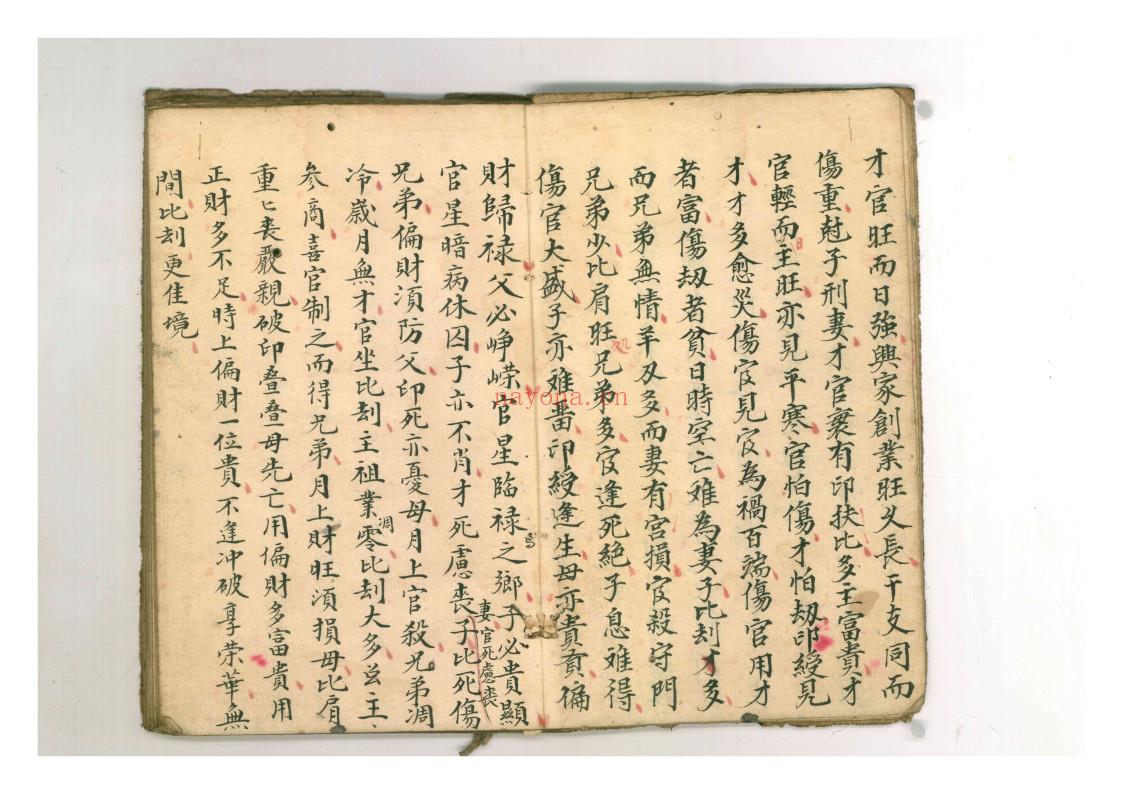 才官旺而日強興家創業旺久長干支同而
傷重尅子刑妻才官衰有印扶比多主富貴才
官輕而主旺亦見平寒官怕傷才怕刼印綬見
才才多愈災傷官見官為禍百端傷官用才
者富傷刼者貧日時空亡难為妻子比刦才多
而兄弟無情羊刄多而妻有宫損官殺守門
兄弟少比肩旺处兄弟多官逢死絕子息难得
傷官大盛子亦难畱印綬逢生母亦貴賁偏
財歸禄父必峥嵘官星臨禄之鄉子必貴顯
官星暗病休囚子亦不肖才死慮喪妻官死慮喪子比死傷
兄弟偏財須防父印死亦憂母月上官殺兄弟凋
冷歲月無才官坐比刦主祖業凋零比刦大多玆主
參商喜官制之而得兄弟月上財旺須損母比肩
重〻喪嚴親破印叠叠母先亡用偏財多富貴用
正財多不足時上偏財一位貴不逢冲破享荣華無
間比刦更佳境
nayona.cn